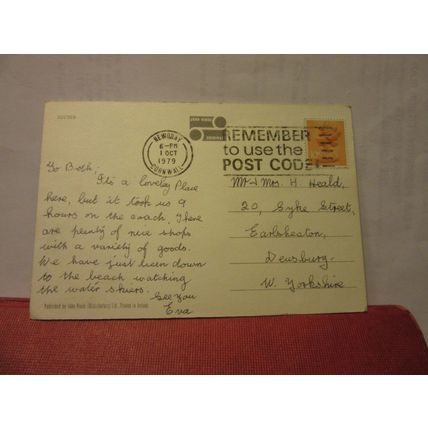 NEWQUAY
6-PM
1 OCT
1979
CORNWALL
REMEMBER
to use the
POST CODE
To Both,
Its a lovely Place
here, but it took us 9
hours on the coach. There
are plenty of nice shops
with a variety of goods.
We have just been down
to the beach watching
the water skiers.
See You
Eva
Mr & Mrs. H. Heald,
20, Syke Street,
Earlsheaton,
Dewsbury.
W. Yorkshire
Published by John Hinde (Distributors) Ltd. Printed in Ireland.